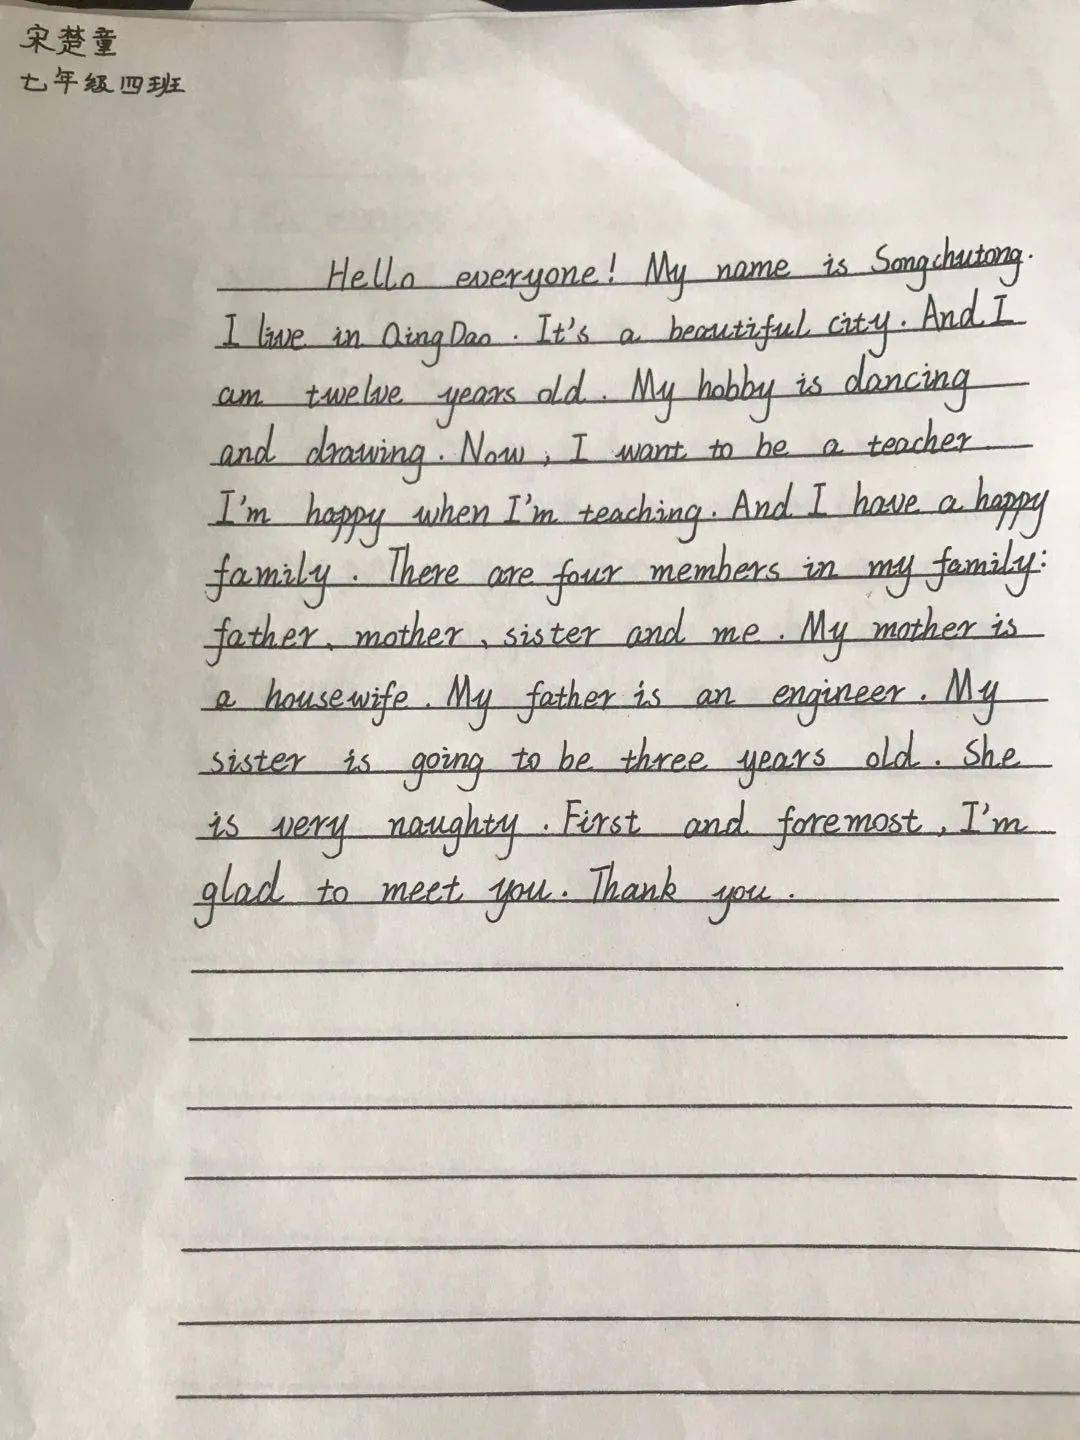 宋楚童
七年级四班
Hello everyone! My name is Songchutong.
I live in QingDao. It's a beautiful city. And I
am twelve years old. My hobby is dancing
and drawing. Now, I want to be a teacher
I'm happy when I'm teaching. And I have a happy
family. There are four members in my family:
father、mother、sister and me. My mother is
a housewife. My father is an engineer. My
sister is going to be three years old. She
is very naughty. First and foremost, I'm
glad to meet you. Thank you.